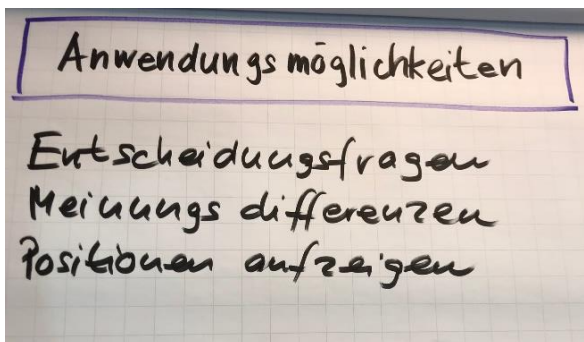 Anwendungsmöglichkeiten
Entscheidungsfragen
Meinungsdifferenzen
Positionen aufzeigen